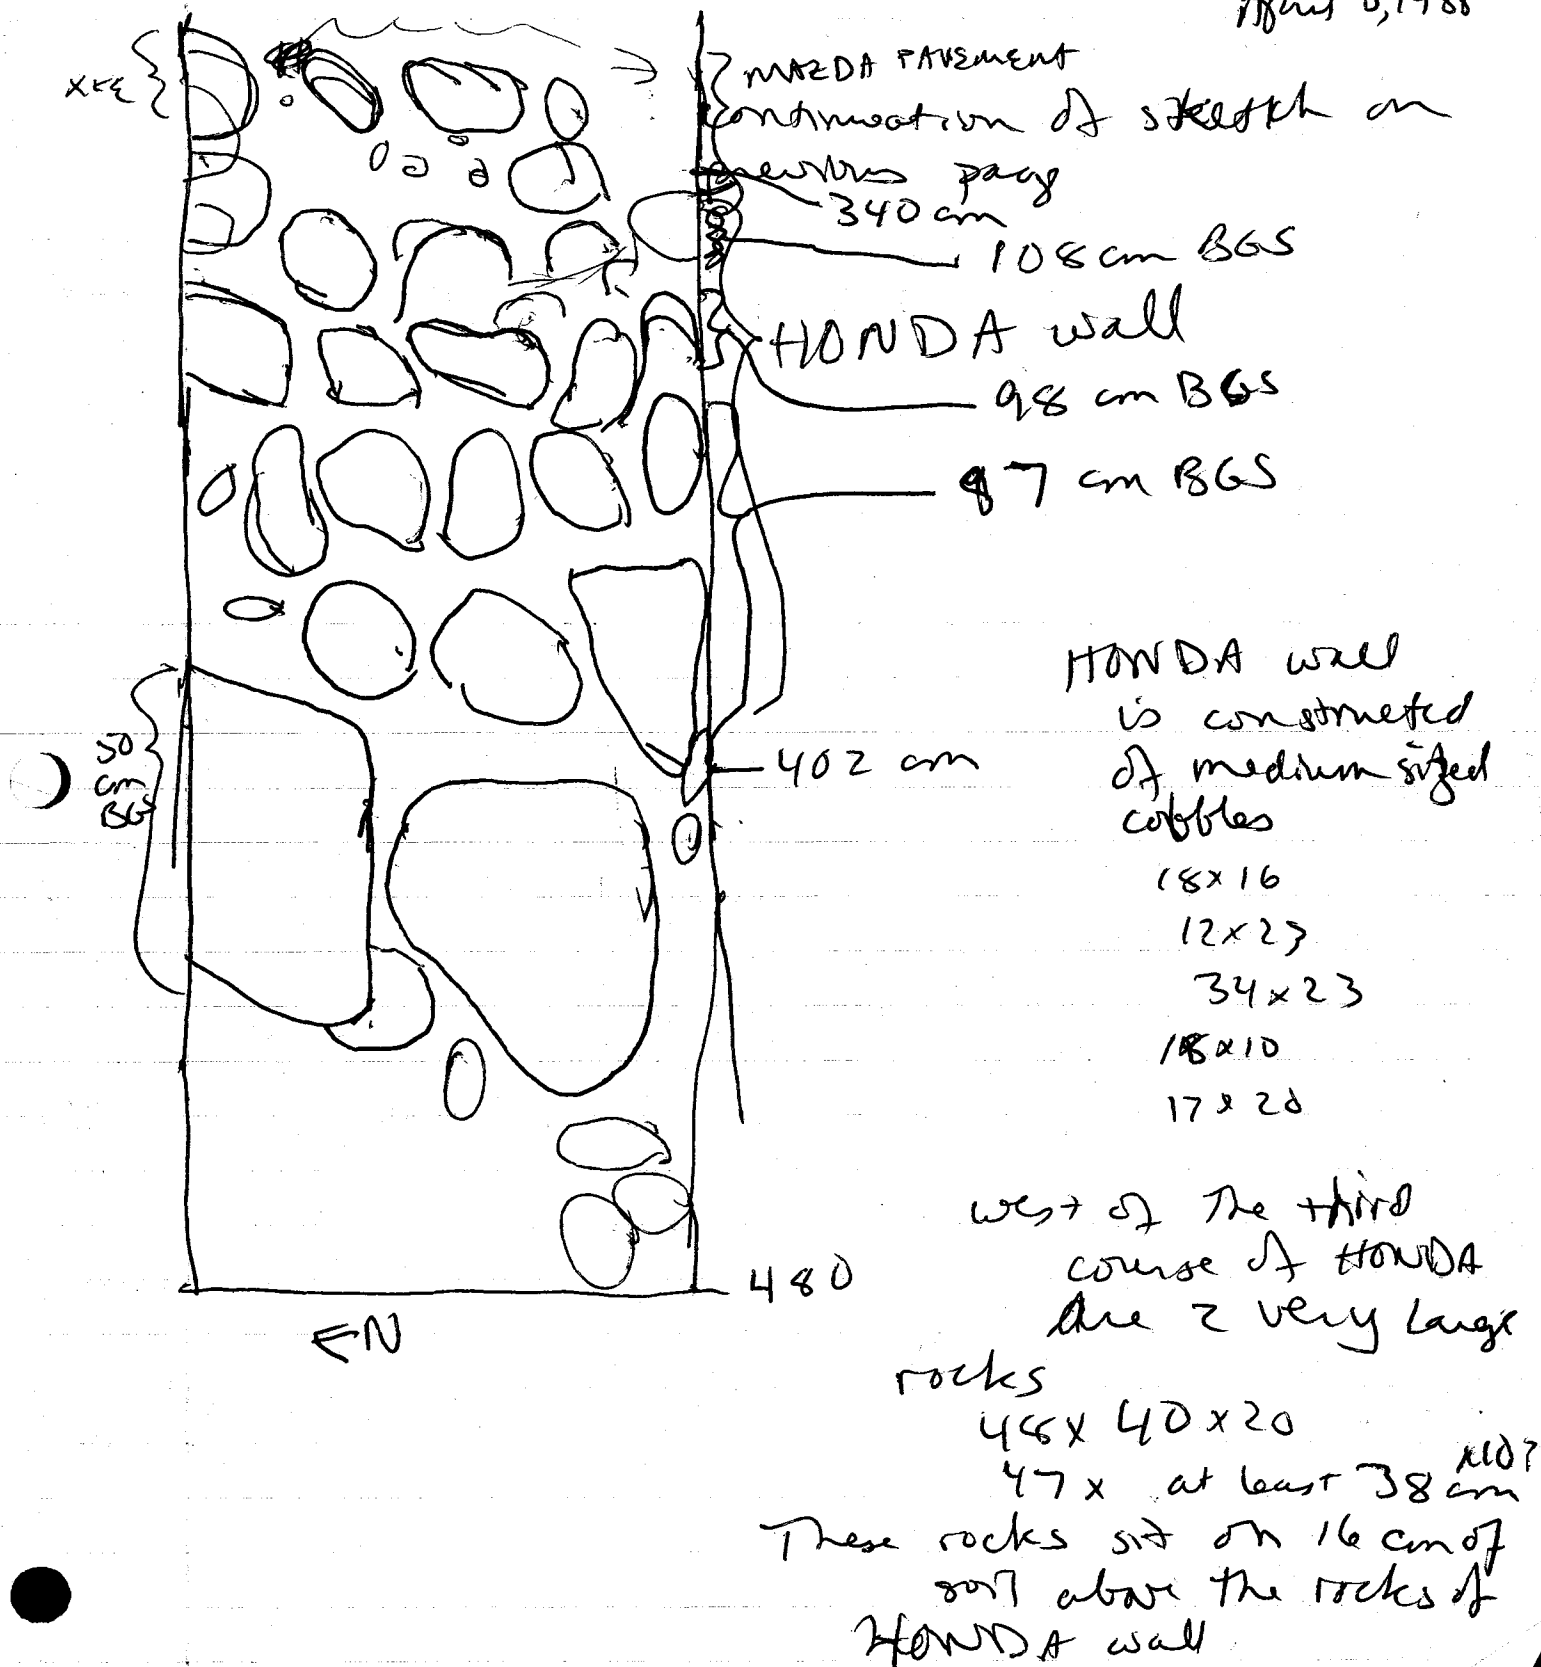 April 6, 1988
MAZDA PAVEMENT
continuation of sketch on
previous page
340 cm
108 cm BGS
HONDA wall
98 cm BGS
87 cm BGS
HONDA wall
is constructed
of medium sized
cobbles
18x16
12x23
34x23
18x10
17x20
50
cm
BGS
402 cm
480
west of the third
course of HONDA
are 2 very large
rocks
48x 40x20
47x at least 38 cm x10?
These rocks sit on 16 cm of
soil above the rocks of
HONDA wall
N